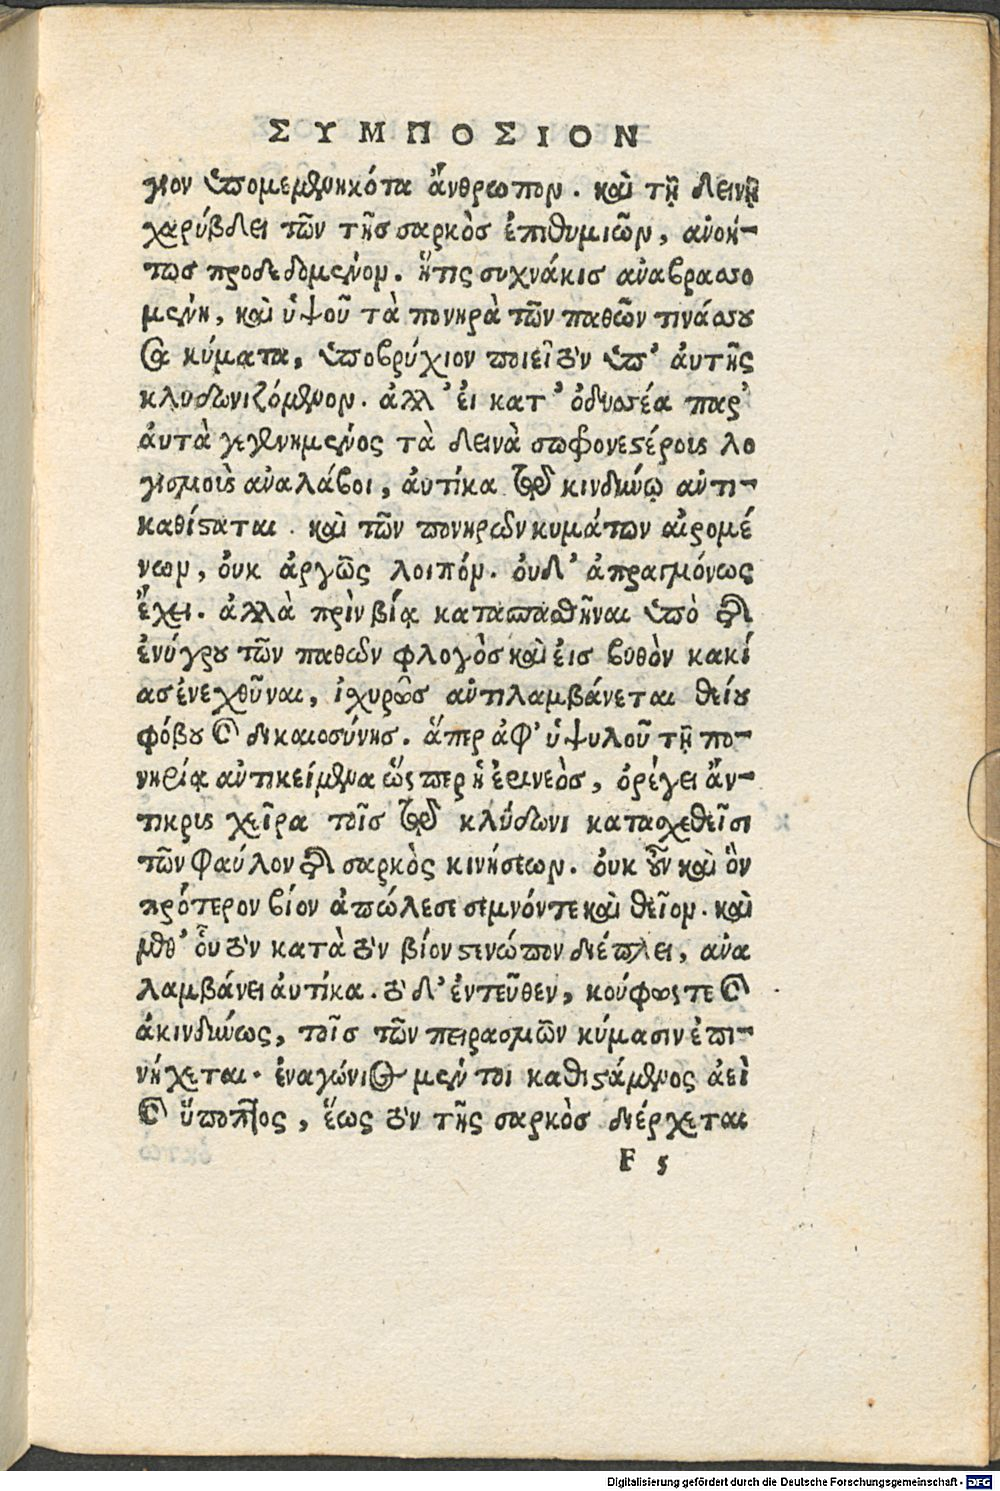 ΣΥΜΠΟΣΙΟΝ
γιον ὑπομεμενηκότα ἄνθρωπον. καὶ τῇ δεινῇ
χαρύβδει τῶν τῆς σαρκὸς ἐπιθυμιῶν, ἀνοή-
τως προδεδομένον. ἥτις συχνάκις ἀναβρασσο
μένη, καὶ ὑψοῦ τὰ πονηρὰ τῶν παθῶν τινάσσου
σα κύματα, ὑποβρύχιον ποιεῖ τὸν ὑπ’ ἀυτῆς
κλυδωνιζόμενον. ἀλλ’ ἐι κατ’ ὀδυσσέα παρ’
ἀυτὰ γεγενημένος τὰ δεινὰ σωφρονεστέροις λο
γισμοῖς ἀναλάβοι, ἀυτίκα τῷ κινδύνῳ ἀντι-
καθίσταται. καὶ τῶν πονηρῶν κυμάτων αἰρομέ
νων, ὀυκ ἀργῶς λοιπόν. ὀυδ’ ἀπραγμόνως
ἔχει. ἀλλὰ πρὶν βίᾳ κατασπασθῆναι ὑπὸ τοῦ
ἐνύγρου τῶν παθῶν φλογὸς καὶ ἐις βυθὸν κακί
ας ἐνεχθῦναι, ἰχυρῶς ἀντιλαμβάνεται θείου
φόβου καὶ δικαιοσύνης. ἅπερ ἀφ’ ὑψυλοῦ τῇ πο-
νηρίᾳ ἀντικείμενα ὥςπερ ἡ ἐρινεὸς, ὀρέγει ἄν-
τικρις χεῖρα τοῖς τῷ κλύδωνι κατασχεθεῖσι
τῶν φαύλον τῆς σαρκὸς κινήσεων. ὀυκ οὖν καὶ ὃν
πρότερον βίον ἀπώλεσε σεμνόν τε καὶ θεῖον. καὶ
μεθ’ οὗ τὸν κατὰ τὸν βίον στενώπον διέπλει, ἀνα
λαμβάνει ἀυτίκα. τὸ δ’ ἐντεῦθεν, κούφως τε καὶ
ἀκινδύνως, τοῖς τῶν πειρασμῶν κύμασιν ἐπι-
νήχεται. ἐναγώνιος μέν τοι καθιστάμενος ἀεὶ
καὶ ὕποπτος, ἕως τὸν τῆς σαρκὸς διέρχεται
F 5
Digitalisierung gefördert durch die Deutsche Forschungsgemeinschaft - DFG